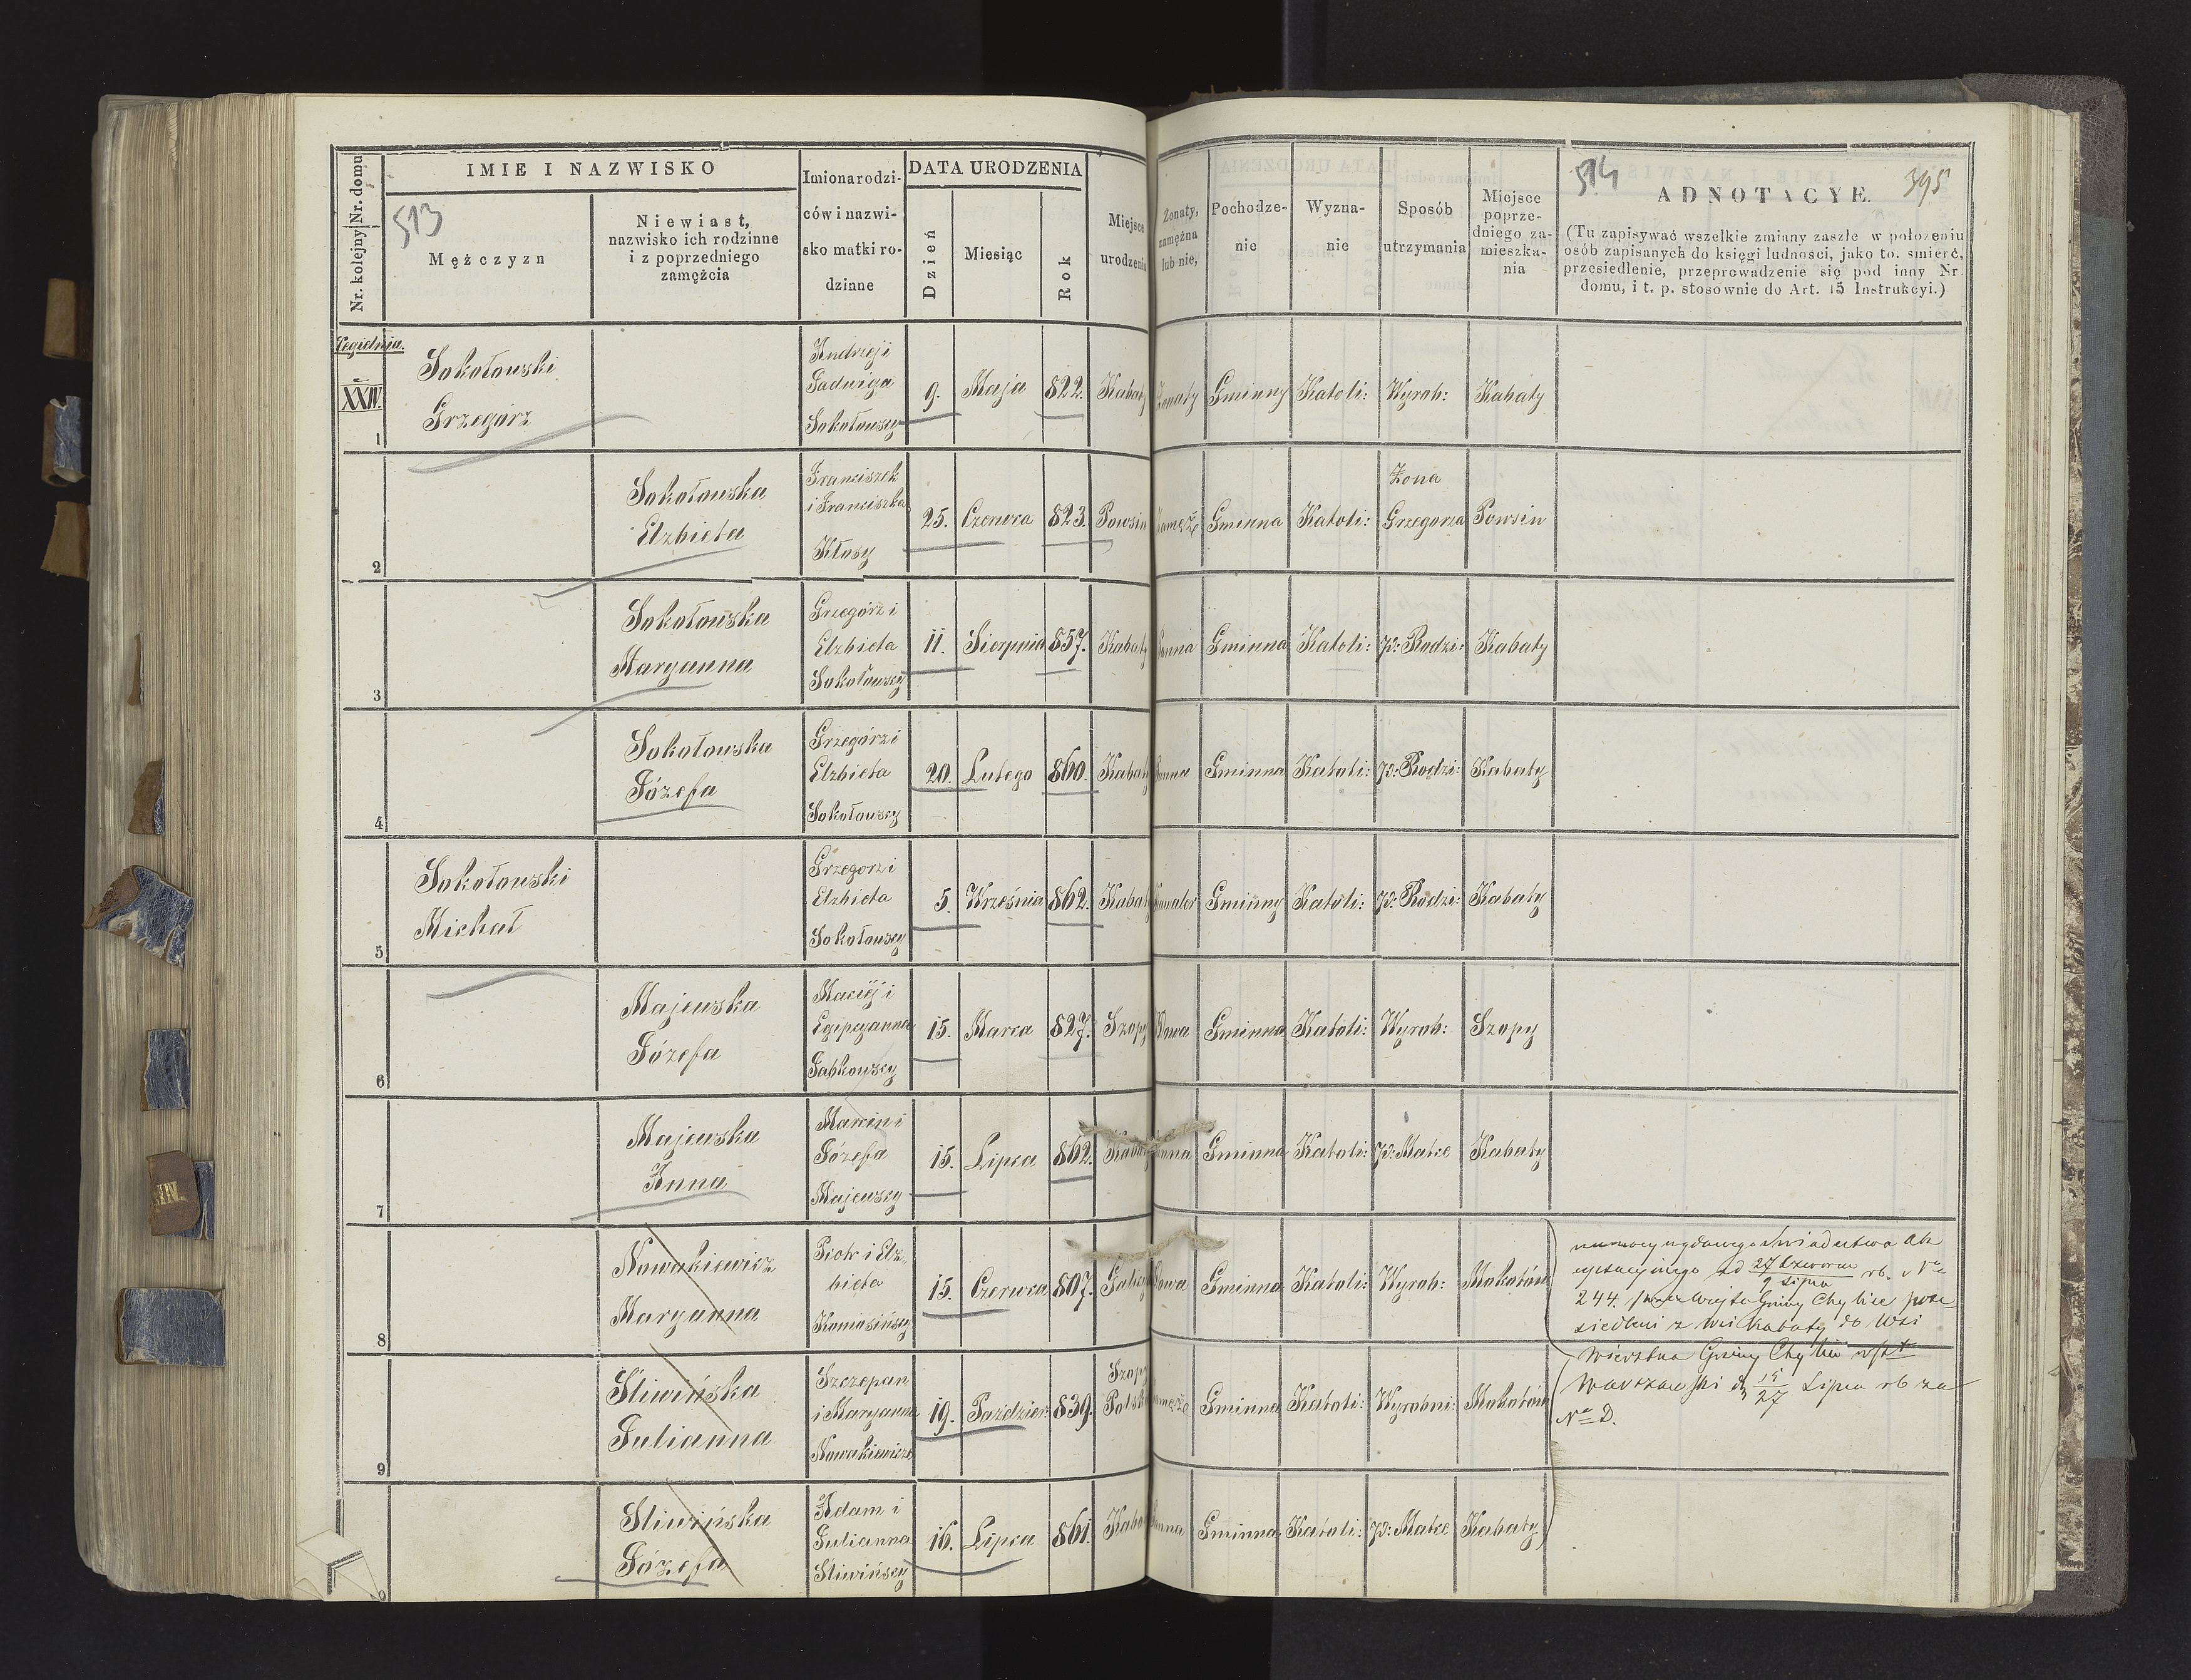 Nr. kolejny Nr. domu
IMIE I NAZWISKO
513
Mężczyzn
Niewiast,
nazwisko ich rodzinne
i z poprzedniego
zamężcia
Imiona rodzi-
ców i nazwi-
sko matki ro-
dzinne
DATA URODZENIA
Dzień
Miesiąc
Rok
Miejsce
urodzenia
Żonaty,
zamężna
lub nie,
Pochodze-
nie
Wyzna-
nie
Sposób
utrzymania
Miejsce
poprze-
dniego za-
mieszka-
nia
514
395
ADNOTACYE.
(Tu zapisywać wszelkie zmiany zaszłe w położeniu
osób zapisanych do księgi ludności, jako to. śmierć,
przesiedlenie, przeprowadzenie się pod inny Nr.
domu, i t. p. stosownie do Art. 15 Instrukcyi.)
XXIV.
1
Sokołowski
Grzegorz
Andrzej i
Jadwiga
Sokołowscy
9. Maja 822. Kabaty Żonaty Gminny Katoli: Wyrob: Kabaty
2
Sokołowska
Elzbieta
Franciszek
i Franciszka
Kłosy
25. Czerwca 823. Powsin Zamęż Gminna Katoli: Żona
Grzegorza Powsin
3
Sokołowska
Maryanna
Grzegórz i
Elzbieta
Sokołowscy
11. Sierpnia 857. Kabaty Panna Gminna Katoli: p: Rodzi: Kabaty
4
Sokołowska
Józefa
Grzegórz i
Elzbieta
Sokołowscy
20. Lutego 860. Kabaty Panna Gminna Katoli: p: Rodzi: Kabaty
5
Sokołowski
Michał
Grzegorz i
Elzbieta
Sokołowscy
5. Września 862. Kabaty Kawaler Gminny Katoli: p: Rodzi: Kabaty
6
Majewska
Józefa
Maciej i
Egipcyanna
Jabkowscy
15. Marca 827. Szopy Wdowa Gminna Katoli: Wyrob: Szopy
7
Majewska
Anna
Marcin i
Józefa
Majewscy
15. Lipca 862. Kabaty Panna Gminna Katoli: p: Matce Kabaty
8
Nowakiewicz
Maryanna
Piotr i Elz-
bieta
Komosińscy
15. Czerwca 807. Wdowa Gminna Katoli: Wyrob: Mokotów
9
Sliwińska
Julianna
Szczepan
i Maryanna
Nowakiewicze
19. Paździer: 839. Szopy
Polskie Zamęż Gminna Katoli: Wyrobni: Mokotów
Sliwińska
Józefa
Adam i
Julianna
Sliwińscy
16. Lipca 861. Kabaty Panna Gminna Katoli: p: Matce Kabaty
wydanego świadectwa
od 27 Czerwca / 9 Lipca rb. No
244. przez Wójta Gminy Chylice prze-
siedleni z wsi Kabaty do Wsi
Wierzbna Gminy
Warszawski d 15/27 Lipca rb za
No D.